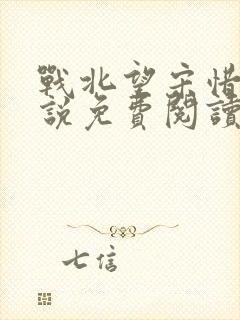 戰北望宋惜
說免費閱讀
七信